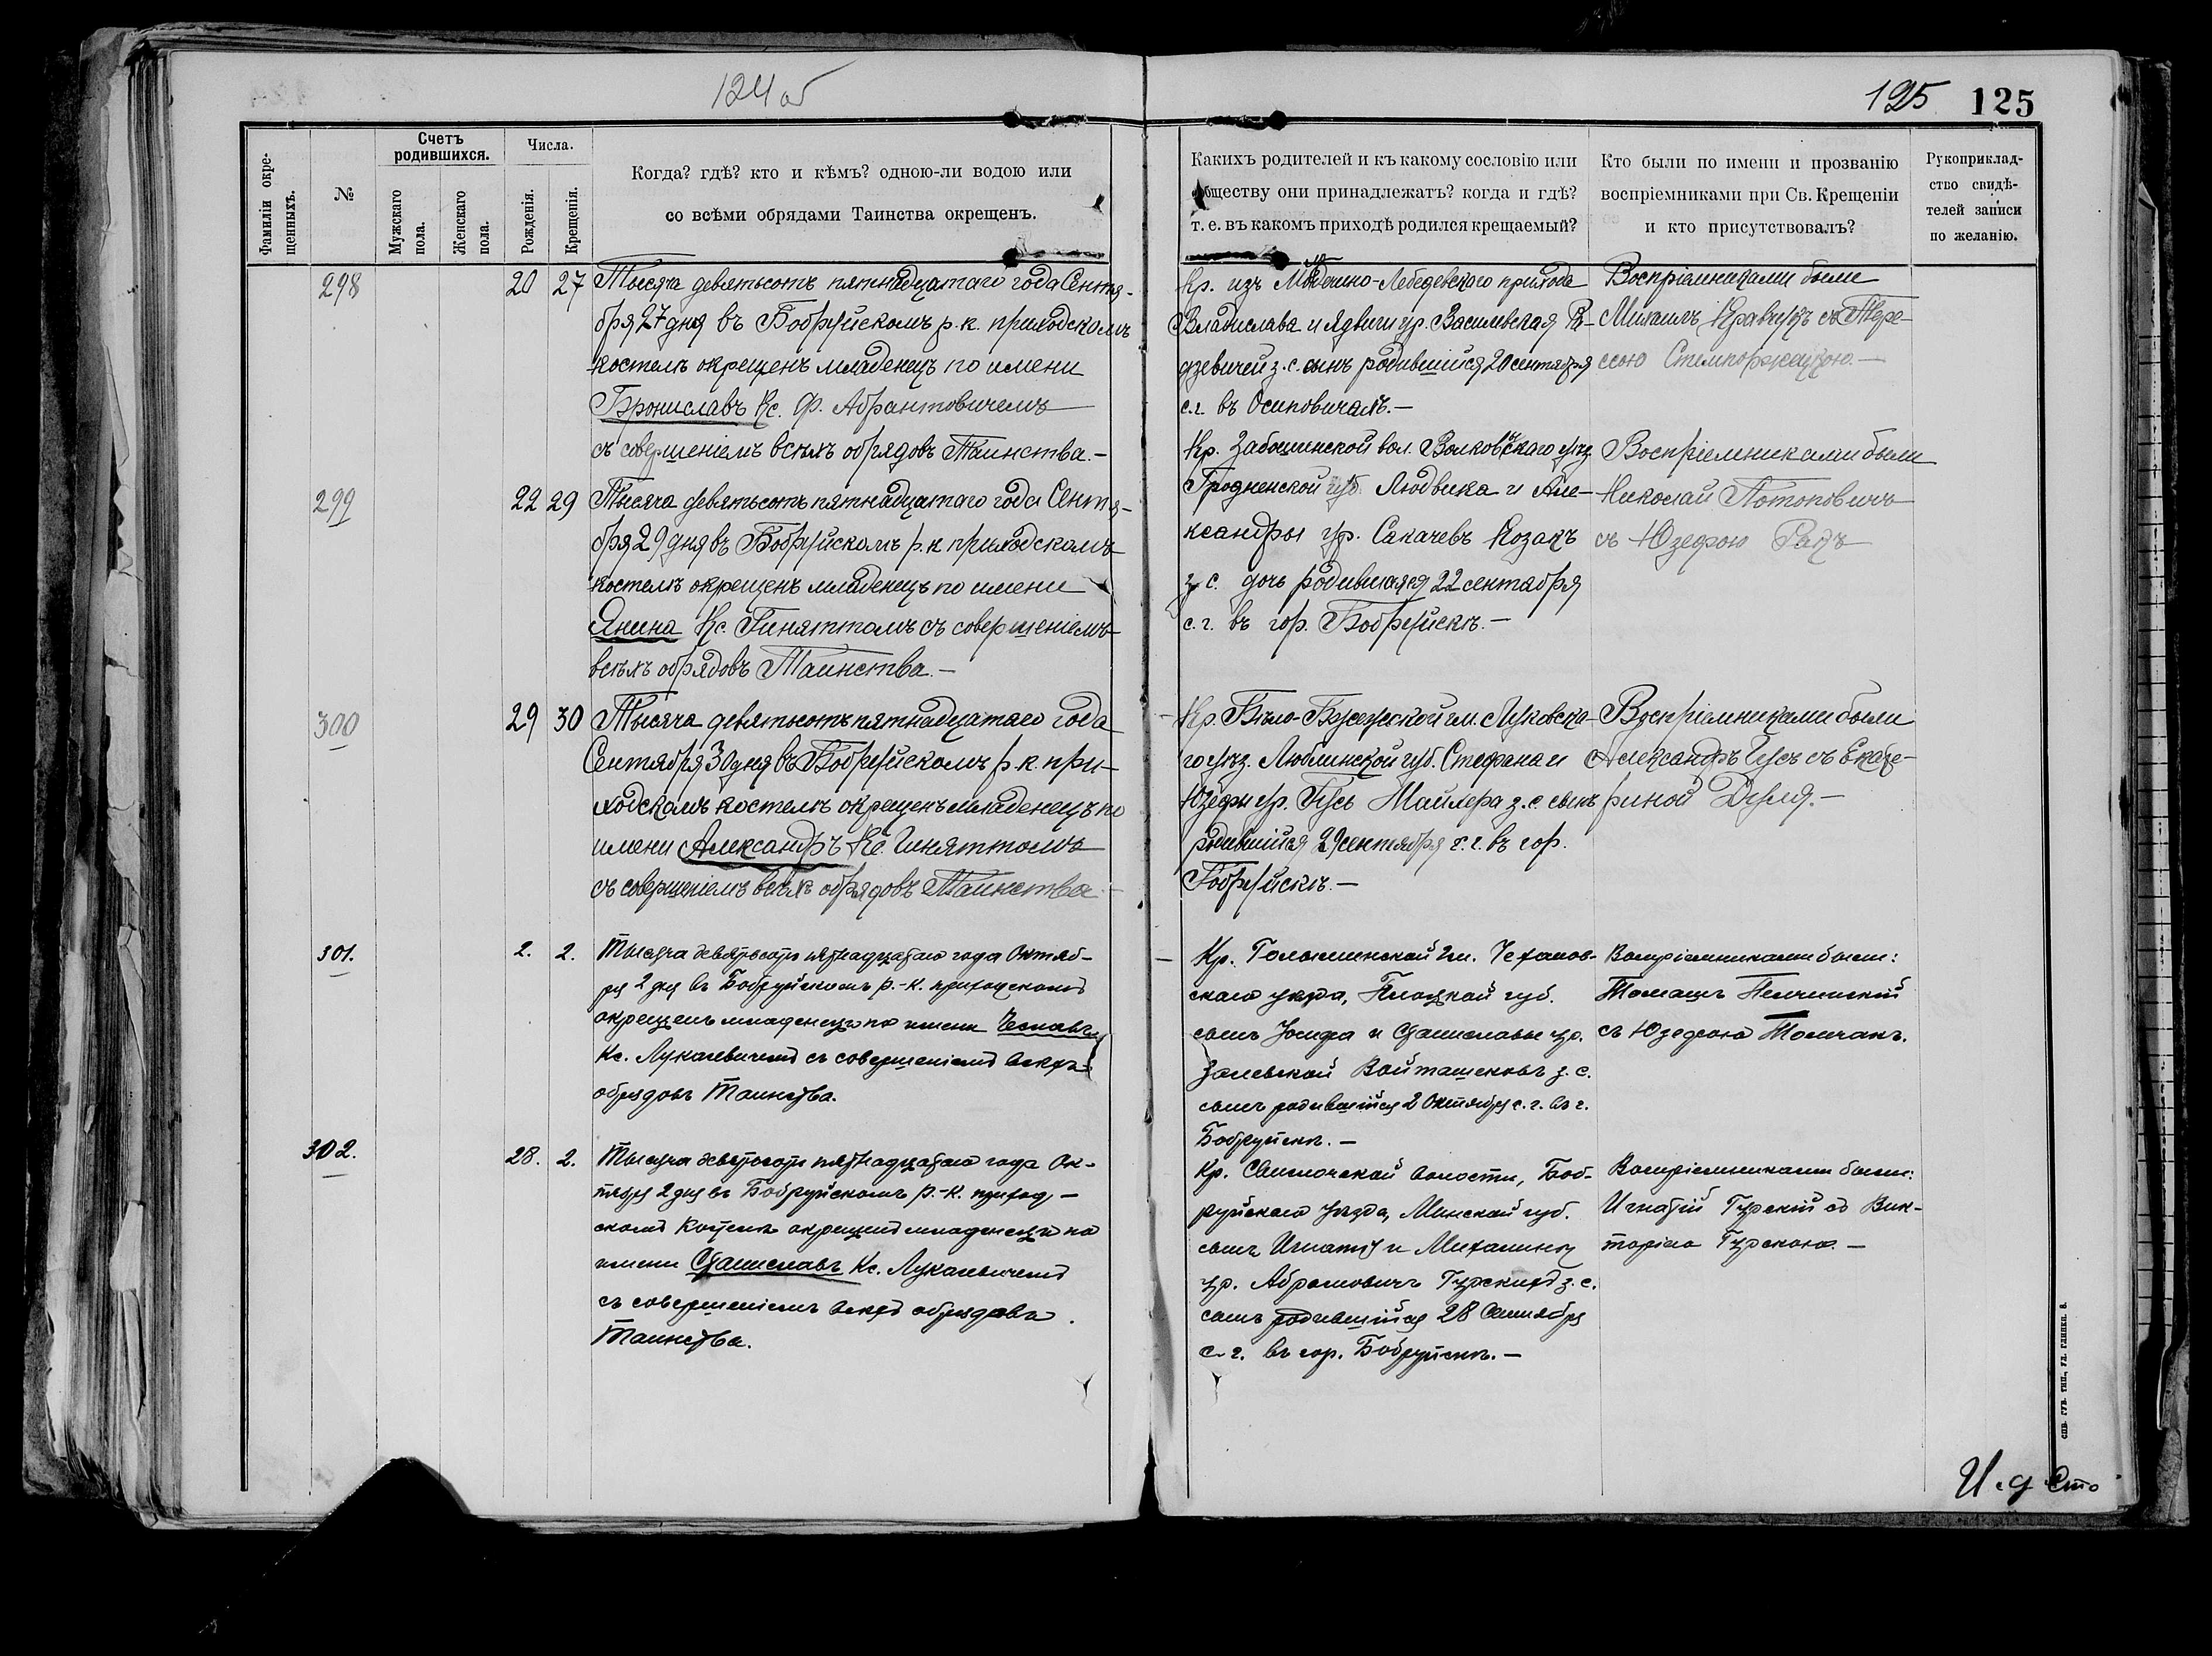 124 об
125 125
Фамиліи окре-
щенныхъ.
№
Счетъ
родившихся.
Мужскаго
пола.
Женскаго
пола.
Числа.
Рожденія.
Крещенія.
Когда? гдѣ? кто и кѣмъ? одною-ли водою или
со всѣми обрядами Таинства окрещенъ.
298
20 27 Тысяча девятьсотъ пятнадцатаго года Сентя-
бря 27 дня въ Бобруйскомъ р. к. приходскомъ
костелѣ окрещенъ младенецъ по имени
Брониславъ Кс. Ф. Абрантовичемъ
съ совершеніемъ всѣхъ обрядовъ Таинства.—
299
22 29 Тысяча девятьсотъ пятнадцатаго года Сентя-
бря 29 дня въ Бобруйскомъ р. к. приходскомъ
костелѣ окрещенъ младенецъ по имени
Янина Кс. Гиняттомъ съ совершеніемъ
всѣхъ обрядовъ Таинства.—
300
29 30 Тысяча девятьсотъ пятнадцатаго года
Сентября 30 дня въ Бобруйскомъ р. к. при-
ходскомъ костелѣ окрещенъ младенецъ по
имени Александръ Кс. Гиняттомъ
съ совершеніемъ всѣхъ обрядовъ Таинства.—
301.
2. 2. Тысяча девятьсотъ пятнадцатаго года Октяб-
ря 2 дня въ Бобруйскомъ р.-к. приходскомъ
окрещенъ младенецъ по имени Чеславъ
Кс. Лукашевичемъ съ совершеніемъ всѣхъ
обрядовъ Таинства.
302.
28. 2. Тысяча девятьсотъ пятнадцатаго года Ок-
тября 2 дня въ Бобруйскомъ р.-к. приход-
скомъ костелѣ окрещенъ младенецъ по
имени Станиславъ Кс. Лукашевичемъ
съ совершеніемъ всѣхъ обрядовъ
Таинства.
Какихъ родителей и къ какому сословію или
обществу они принадлежатъ? когда и гдѣ?
т. е. въ какомъ приходѣ родился крещаемый?
Кр. изъ Молодечно-Лебедевскаго прихода
Владислава и Ядвиги ур. Василевская Ра-
дзевичей з. с. сынъ родившійся 20 сентября
с. г. въ Осиповичахъ.—
Кр. вол. Волковскаго уѣз.
Гродненской губ. Людвика и Але-
ксандры ур. Сакачевъ Козакъ
з. с. дочь родившаяся 22 сентября
с. г. въ гор. Бобруйскѣ.—
Кр. гм. Луковска-
го уѣз. Люблинской губ. Стефана и
Юзефы ур. Гусь Майхера з. с. сынъ
родившійся 29 сентября с. г. въ гор.
Бобруйскѣ.—
Кр. Голыминской гм. Чехановс-
скаго уѣзда, Плоцкой губ.
сынъ Іосифа и Станиславы ур.
Залевской Войташековъ з. с.
сынъ родившійся 2 Октября с. г. въ г.
Бобруйскѣ.—
Кр. Свислочской волости, Боб-
руйскаго уѣзда, Минской губ.
сынъ Игнатія и Михалины
ур. Абрамовичъ Гурскихъ з. с.
сынъ родившійся 28 Сентября
с. г. въ гор. Бобруйскѣ.—
Кто были по имени и прозванію
воспріемниками при Св. Крещеніи
и кто присутствовалъ?
Воспріемниками были
Михаилъ Кравчукъ съ Тере-
сою Стемпоржецкою.—
Воспріемниками были
Николай Потоповичъ
съ Юзефою Рацъ
Воспріемниками были
Александръ Гусь съ Екате-
риной Дуля.—
Воспріемниками были:
Томашъ Пенчинскій
съ Юзефою Томчакъ.
Воспріемниками были:
Игнатій Гурскій съ Вик-
торіею Гурскою.—
Рукоприклад-
ство свидѣ-
телей записи
по желанію.
СПБ. ГУБ. ТИП., УЛ. ГЛИНКИ. 8.
И. д. Сто